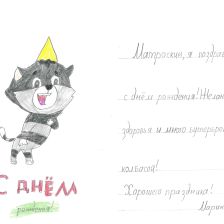 С ДНЁМ
рождения!
Матроскин, я поздрав
с днём рождения! Желаю
здоровья и много бутерброд
колбасой!
Хорошего праздника!
Марин